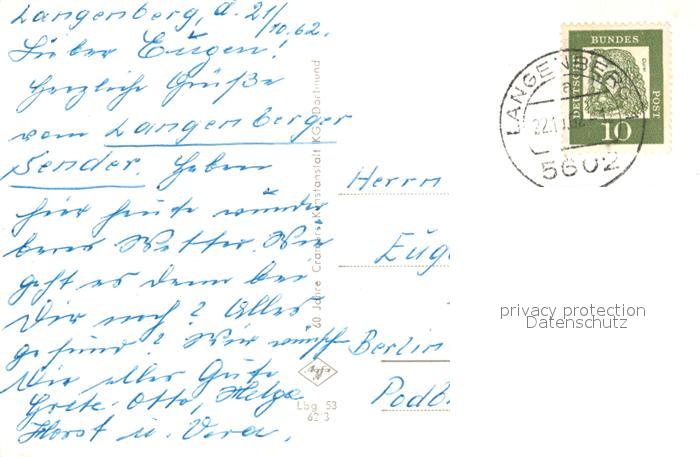 Langenberg, d. 21/10.62.
Lieber Eugen!
Herzliche Grüße
vom Langenberger
Sender. Haben
hier heute wunder
bares Wetter. Wie
geht es denn bei
Dir noch? Alles
gesund? Wir wünsch
Dir alles Gute
Grete. Otto, Helga
Horst u. Vera.
60 Jahre Cramers Kunstanstalt KG, Dortmund
Lbg 53
62 3
DEUTSCHE
BUNDES
POST
Dürer
10
LANGENBERG
22.1
5602
Herrn
Euge
Berlin
Podb
privacy protection
Datenschutz